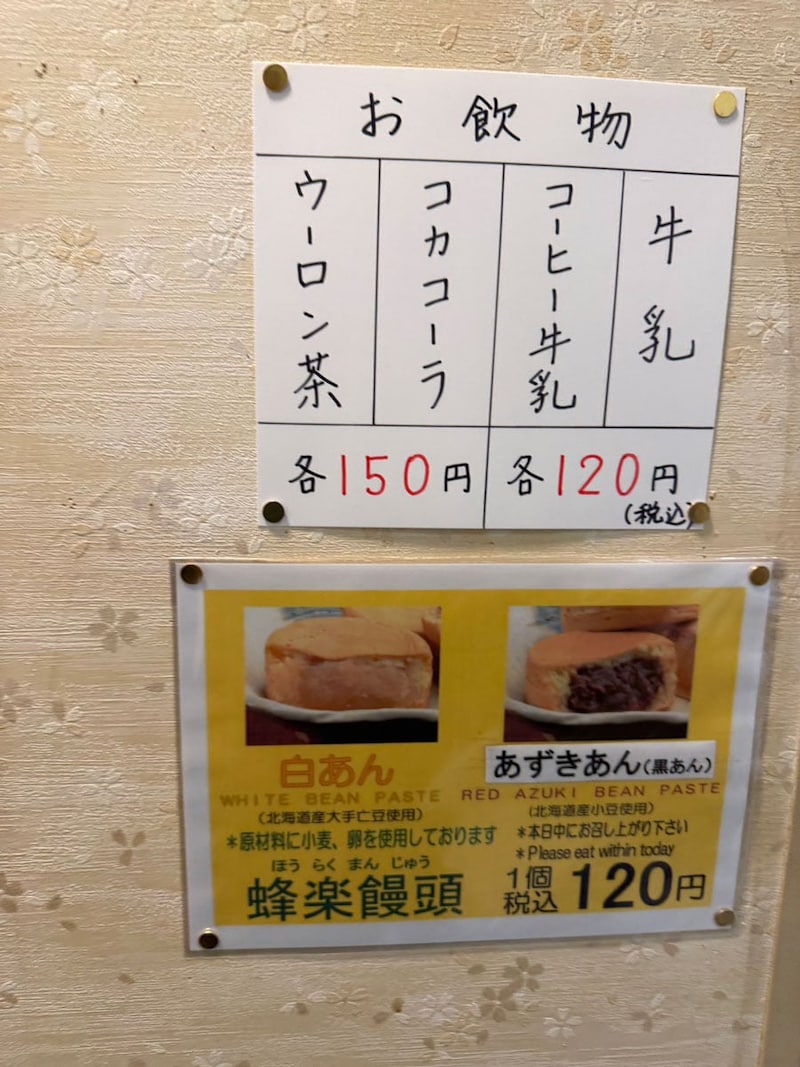 お飲物
牛乳
コーヒー牛乳
コカコーラ
ウーロン茶
各150円
各120円
(税込)
白あん
WHITE BEAN PASTE
(北海道産大手亡豆使用)
*原材料に小麦、卵を使用しております
あずきあん(黒あん)
RED AZUKI BEAN PASTE
(北海道産小豆使用)
*本日中にお召し上がり下さい
*Please eat within today
ほうらくまんじゅう
蜂楽饅頭
1個
税込
120円